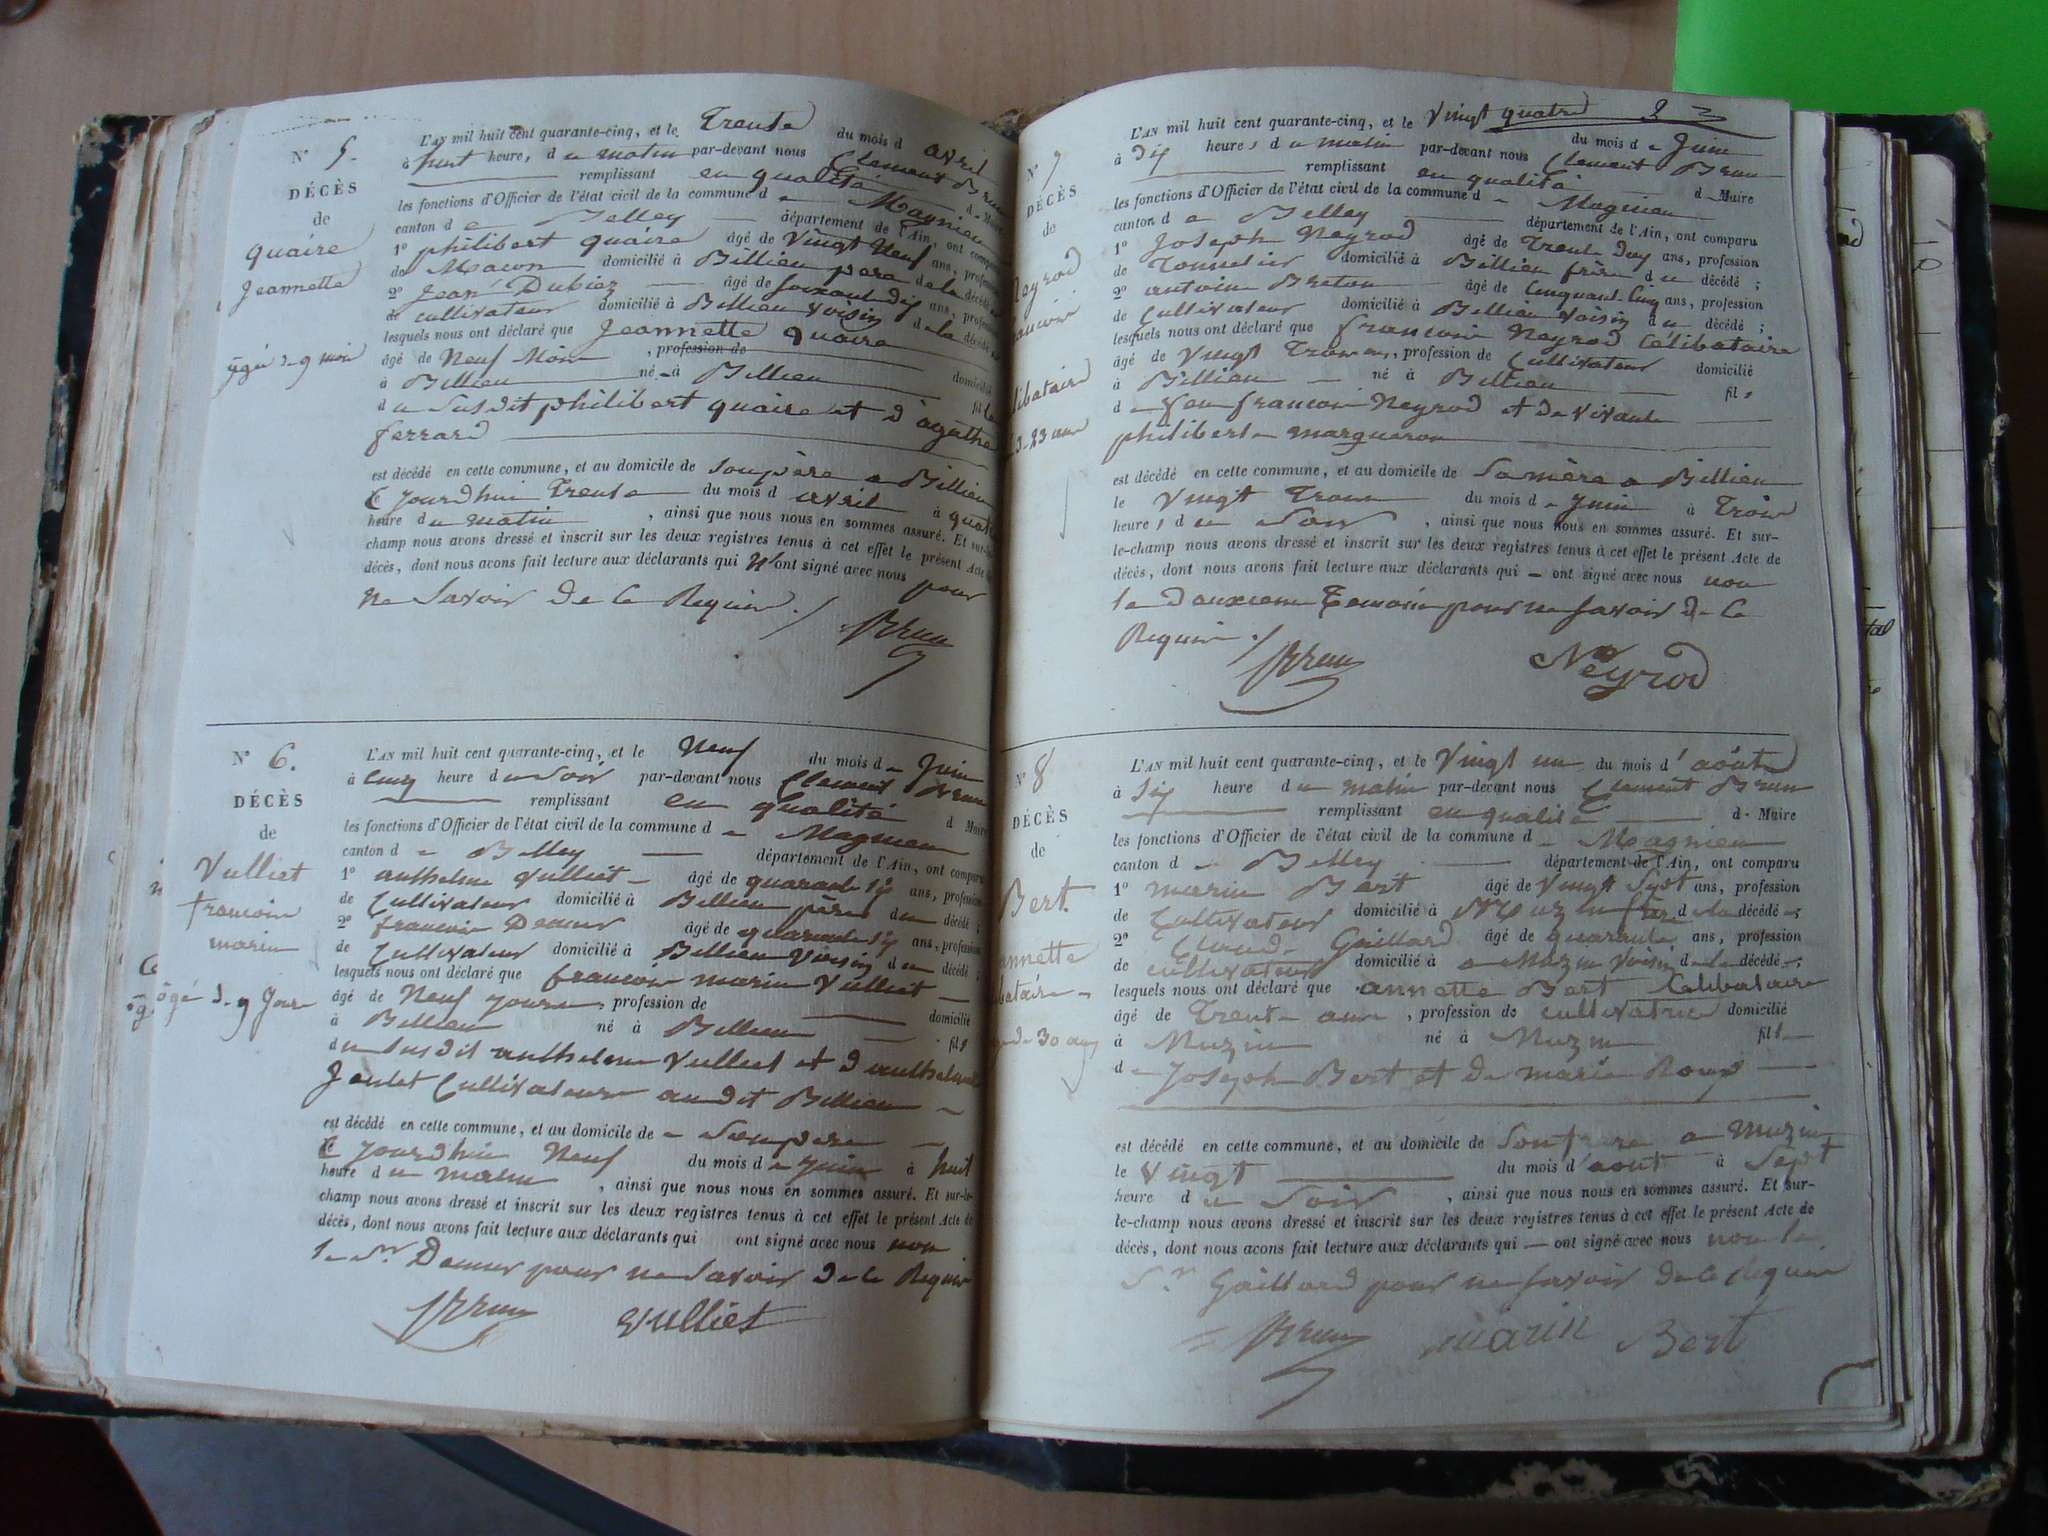 N° 5.
DÉCÈS
de
quaire
Jeannette
âgé de 9 moi
L'AN mil huit cent quarante-cinq, et le Trente du mois d avril
à huit heure, d u matin par-devant nous Clement Brun
remplissant en qualité d e Maire
les fonctions d'Officier de l'état civil de la commune d e Magnieu
canton d e Belley département de l'Ain, ont comparu
1° philibert quaire âgé de Vingt Neuf ans, profession
de Macon domicilié à Billieu pere de la décédé
2° Jean Dubiez âgé de soixant dix ans, profession
de cultivateur domicilié à Billieu voisin de la décédé
lesquels nous ont déclaré que Jeannette quaire
âgé de Neuf Mois , profession de domicilié
à Billieu né à Billieu fil le
d u Susdit philibert quaire et d'agathe
ferrard
est décédé en cette commune, et au domicile de son père a Billieu
le jourdhui Trente du mois d avril à quatre
heure d u matin , ainsi que nous nous en sommes assuré. Et sur-le-
champ nous avons dressé et inscrit sur les deux registres tenus à cet effet le présent Acte de
décès, dont nous avons fait lecture aux déclarants qui n'ont signé avec nous pour
ne Savoir de ce Requis ./
Brun
N° 6.
DÉCÈS
de
Vulliet
francois
marin
âgé de 9 Jour
L'AN mil huit cent quarante-cinq, et le Neuf du mois d e Juin
à cinq heure d u Soir par-devant nous Clement Brun
remplissant en qualité d Maire
les fonctions d'Officier de l'état civil de la commune d e Magnieu
canton d e Belley département de l'Ain, ont comparu
1° anthelme Vulliet âgé de quarante six ans, profession
de Cultivateur domicilié à Billieu père du décédé ;
2° francois Demur âgé de quarante six ans, profession
de Cultivateur domicilié à Billieu Voisin d u décédé ;
lesquels nous ont déclaré que francois marin Vulliet
âgé de Neuf jours, profession de domicilié
à Billieu né à Billieu fils
d u susdit anthelme Vulliet et d'anthelmette
Joulet Cultivateur au dit Billieu
est décédé en cette commune, et au domicile de Son père
le jourdhui Neuf du mois d e juin à huit
heure d u matin , ainsi que nous nous en sommes assuré. Et sur-le-
champ nous avons dressé et inscrit sur les deux registres tenus à cet effet le présent Acte de
décès, dont nous avons fait lecture aux déclarants qui ont signé avec nous non
le Sr Demur pour ne Savoir de ce Requis
Brun Vulliet
N° 7
DÉCÈS
de
Neyrod
francois
libataire
23 ans
L'AN mil huit cent quarante-cinq, et le Vingt quatre du mois d e Juin
à dix heure, d u matin par-devant nous Clement Brun
remplissant en qualité d e Maire
les fonctions d'Officier de l'état civil de la commune d e Magnieu
canton d e Belley département de l'Ain, ont comparu
1° Joseph Neyrod âgé de Trente deux ans, profession
de Tonnelier domicilié à Billieu frère d u décédé ;
2° antoine Breton âgé de Cinquant-Cinq ans, profession
de Cultivateur domicilié à Billieu Voisin d u décédé ;
lesquels nous ont déclaré que francois Neyrod Celibataire
âgé de Vingt Trois ans, profession de Cultivateur domicilié
à Billieu né à Billieu fil s
d e feu francois Neyrod et de vivante
philiberte margueron
est décédé en cette commune, et au domicile de Sa mère a Billieu
le Vingt Trois du mois d e Juin à Trois
heure, d u Soir , ainsi que nous nous en sommes assuré. Et sur-
le-champ nous avons dressé et inscrit sur les deux registres tenus à cet effet le présent Acte de
décès, dont nous avons fait lecture aux déclarants qui ont signé avec nous non
le Deuxieme Temoin pour ne Savoir de ce
Requis ./
Brun Neyrod
N° 8
DÉCÈS
de
Bert.
annette
bataire
de 30 ans
L'AN mil huit cent quarante-cinq, et le Vingt un du mois d'août
à Six heure d u matin par-devant nous Clement Brun
remplissant en qualité d e Maire
les fonctions d'Officier de l'état civil de la commune d e Magnieu
canton d e Belley département de l'Ain, ont comparu
1° marin Bert âgé de Vingt Sept ans, profession
de Cultivateur domicilié à Muzin frère d e la décédé ;
2° Claude Gaillard âgé de quarante ans, profession
de cultivateur domicilié à a Muzin Voisin de la décédé ;
lesquels nous ont déclaré que annette Bert Celibataire
âgé de Trente ans , profession de cultivatrice domicilié
à Muzin né à Muzin fil le
d e Joseph Bert et de marie Roux
est décédé en cette commune, et au domicile de Son frere a Muzin
le Vingt du mois d'août à Sept
heure d u Soir , ainsi que nous nous en sommes assuré. Et sur-
le-champ nous avons dressé et inscrit sur les deux registres tenus à cet effet le présent Acte de
décès, dont nous avons fait lecture aux déclarants qui ont signé avec nous non le
Sr Gaillard pour ne Savoir de ce Requis
Brun marin Bert